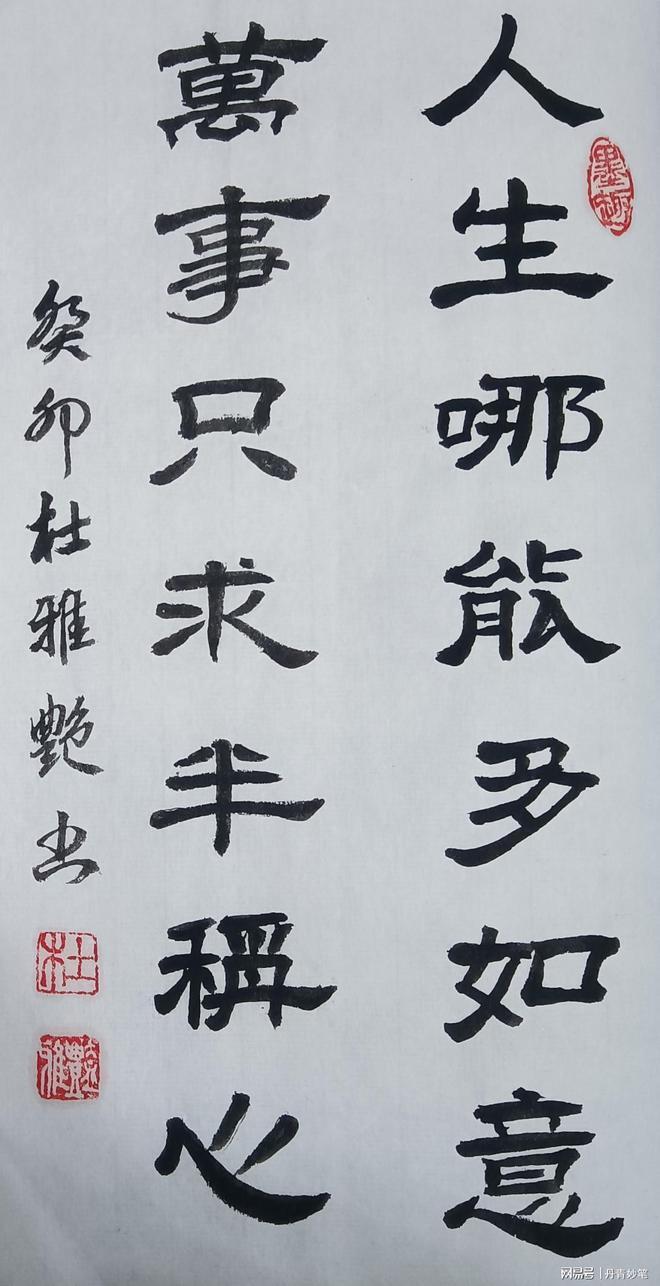 人生哪能多如意
萬事只求半稱心
癸卯杜雅艷书
墨趣
杜
雅艷
网易号 | 丹青妙笔